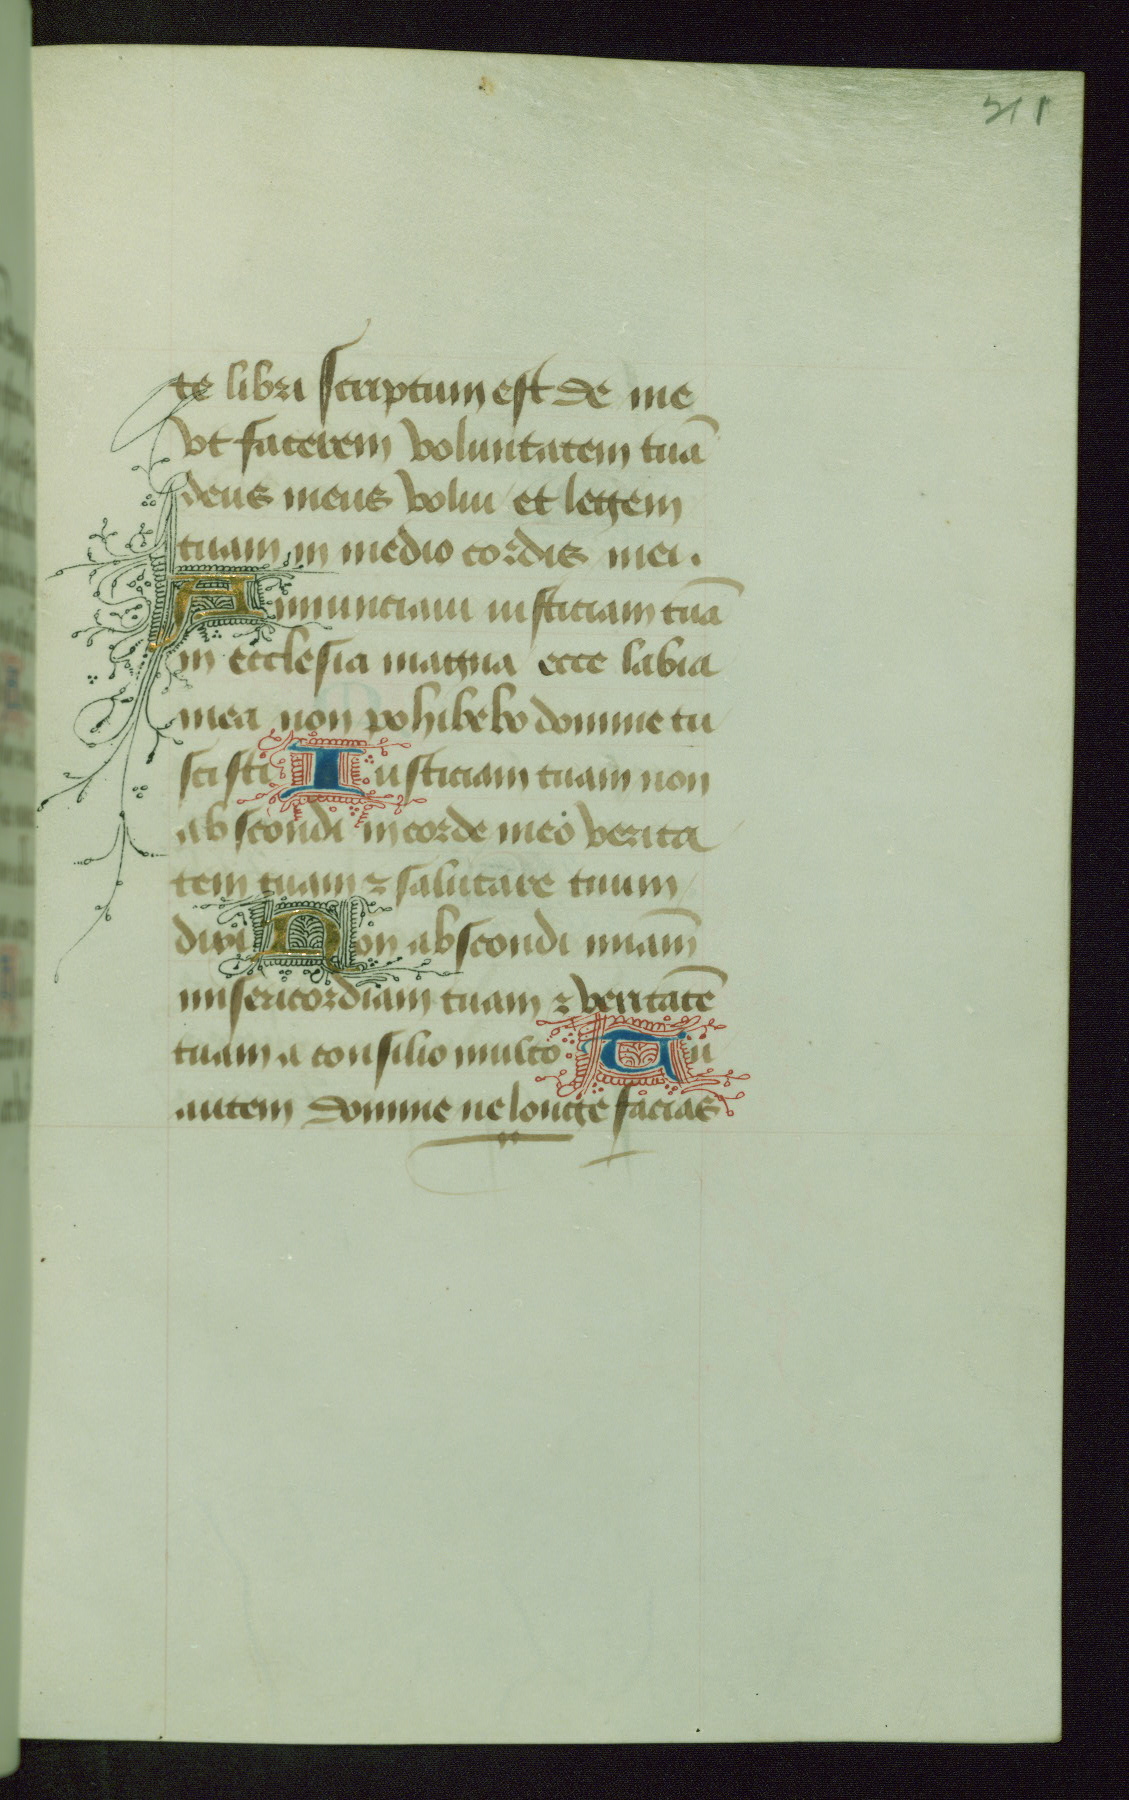 211
te libri scriptum est de me
vt facerem voluntatem tuā
deus meus volui et legem
tuam in medio cordis mei.
Annunciaui iusticiam tuā
in ecclesia magna ecce labia
mea non pohibebo domine tu
scisti Iusticiam tuam non
abscondi in corde meo verita
tem tuam ⁊ salutare tuum
dixi Non abscondi

misericordiam tuam ⁊ veritatē
tuam a consilio multo Tu
autem domine ne longe facias